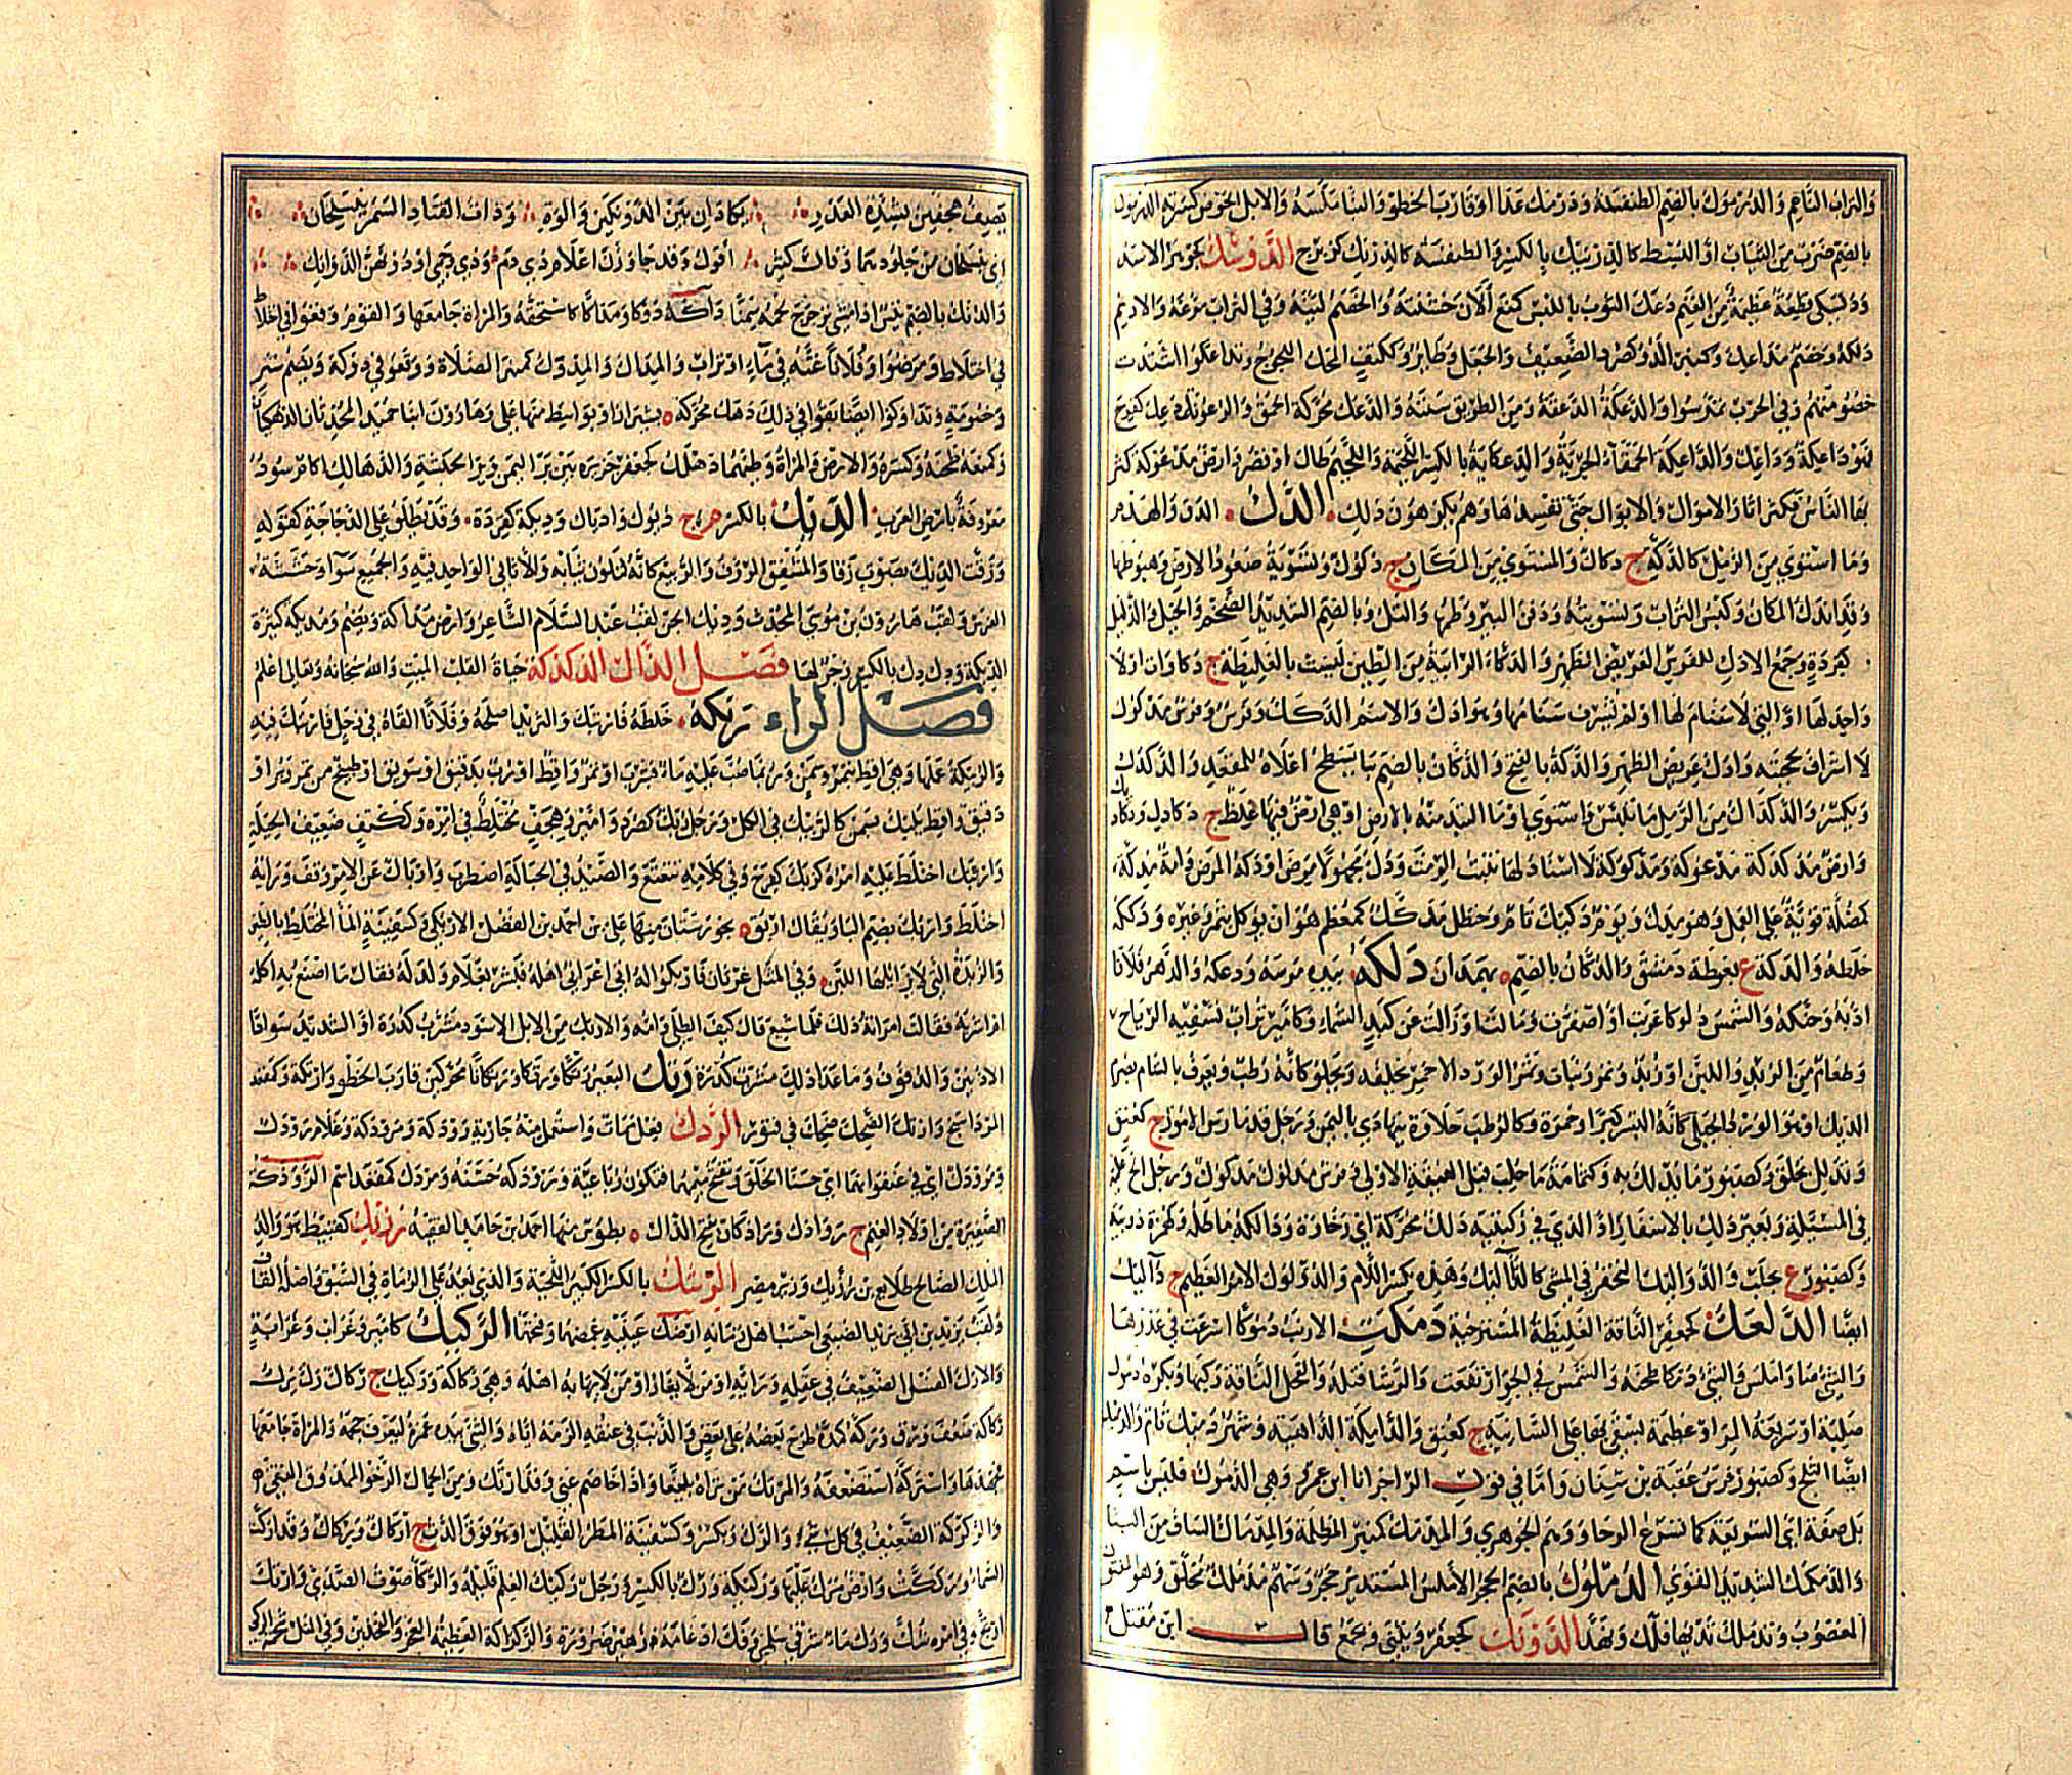 والتراب الناعم والدرموك بالضم الطنفسة ودرمك عدا او قارب الخطو والبنا ملسه والابل الحوض كسرته الدرنوك
بالضم ضرب من الثياب او البسط كالدرنيك بالكسر والطنفسة كالدرنك كزبرج الدوسك كجوهر الاسد
وديسكى قطيعة عظيمة من الغنم دعك الثوب باللبس كمنع الان خشنته والخصم لينه وفي التراب مرغه والاديم
دلكه وخصم مداعك وكمنبر الد وكصرد الضعيف والجعل وطائر وككتف المحك اللجوج وتداعكوا اشتدت
خصومتهم وفي الحرب تمرسوا والدعكة الدعقة ومن الطريق سننه والدعك محركة الحمق والرعونة دعك كفرح
فهو داعكة وداعك والداعكة الحمقاء الجرية والدعكاية بالكسر اللحيمة واللحيم طال او قصر وارض مدعوكة كثر
بها الناس فكثر اثار الاموال والابوال حتى تفسدها وهم يكرهون ذلك الدك الدق والهدم
وما استوى من الرمل كالدكة ج دكاك والمستوي من المكان ج دكوك وتسوية صعود الارض وهبوطها
وقد اندك المكان وكبس التراب وتسويته ودفن البير وطمها والتل وبالضم الشديد الضخم والجبل الذليل
كقردة وجمع الادك للفرس العريض الظهر والدكاء الرابية من الطين ليست بالغليظة ج دكاوات او لا
واحد لها او التي لاسنام لها او لم يشرف سنامها وهو ادك والاسم الدكك وفرس مدكوك
لا اشراف لحجبته وادك عريض الظهر والدكة بالفتح والدكان بالضم ما يسطح اعلاه للمقعد والدكدك
ويكسر والدكداك من الرمل ما تلبس واستوى او ما التبد منه بالارض او هي ارض فيها غلظ ج دكادك ودكاديك
وارض مدكدكة مدعوكة ومدكوكة لا اسناد لها تنبت الرمث ودك مجهولا مرض او دكه المرض وامة مدكة
كمصكة قوية على العمل وهو مدك ويوم دكيك تام وحنظل مدكك كمعظم هو ان يؤكل بتمر وغيره ودككه
خلطه والدكة ع بغوطة دمشق والدكان بالضم ه بهمدان دلكه بيده مرسه ودعكه والدهر فلانا
ادبه وحنكه والشمس دلوكا غربت او اصفرت او مالت او زالت عن كبد السماء وكامير تراب تسفيه الرياح
وطعام من الزبد واللبن او زبد وتمر ونبات وثمر الورد الاحمر يخلفه ويحلو كانه رطب ويعرف بالشام بصرم
الديك او هو الورد الجبلي كانه البسر كبرا وحمرة وكالرطب حلاوة يتهادى باليمن ورجل قد مارس الامور ج كعنق
وتدلك به تخلق وكصبور ما يدلك به وكثمامة ما حلب قبل الفيقة الاولى وفرس مدلوك مدكوك ورجل الح عليه
في المسئلة وبعير دلك بالاسفار او الذي في ركبتيه دلك محركة اي رخاوة ودالكه ماطله وكهمزة دويبة
وكصبور ع بحلب والدواليك التحفز في المشي كالدآليك وهذه بكسر اللام والدولوك الامر العظيم ج دآليك
ايضا الدلعك كجعفر الناقة الغليظة المسترخية دمكت الارنب دموكا اسرعت في عدوها
والشئ صار املس والشئ دمكا طحنه والشمس في الجو ارتفعت والرشا فتله والفحل الناقة ركبها وبكرة دموك
صلبة او سريعة المر او عظيمة يستقى بها على السانية ج كعنق والدامكة الداهية وشهر دميك تام والدملك
ايضا الثلج وكصبور فرس عقبة بن سنان واما في قول الراجز انا ابن عمرو وهي الدموك فليس باسم
بل صفة اي السريعة كما تسرع الرحا ووهم الجوهري والمدمك كمنبر المطلمة والمدماك الساف من البنا
والدمكمك الشديد القوي الدملوك بالضم الحجر الاملس المستدير حجر وسهم مدملك مخلق وهو المفتول
المعصوب وتدملك ثديها فلك ونهد الدونك كجعفر ويثنى ويجمع قال ابن مقبل
يصيف هجفين بشده الغدير يكادان بين الدونكين والوة وذات القتاد السمر ينسلخان
اي ينسلخان من جلودهما وقال كثير اقول وقد جاوزن اعلام ذي دم وذي وجمى او دونهن الدوانك
والدنك بالضم داكه دوكا ومداكا سحقه والمراة جامعها والقوم وقعوا في اختلاط
في اختلاط ومرضوا وفلانا غثه في ماء او تراب والمداك والمدوك كمنبر الصلاة ووقعوا في دوكة ويضم شر
وخصومة وتداوكوا تضايقوا في ذلك دهك محركة ه بشيراز او بواسط منها علي وهارون ابنا حميد المحدثان الدهكيان
وكمنعه طحنه وكسره والارض والمراة وطئهما دهلك كجعفر جزيرة بين بر اليمن وبر الحبشة والدهالك كام مرسود
معروفة بارض العرب الديك بالكسر م ج ديوك وادياك وديكة كقردة وقد يطلق على الدجاجة كقوله
وزقت الديك بصوت زقا والمشفق الرؤف والربيع كانه لتلون نباته والاثافي الواحد فيه والجميع سوا وخششا
الفرس ولقب هارون بن موسى المحدث وديك الجن لقب عبد السلام الشاعر وارض مداكة ويضم ومديكة كثيرة
الديكة وديك ديك بالكسر زجر لها فصل الذال الذكذكة حياة القلب الميت والله سبحانه وتعالى اعلم
فصل الراء ربكه خلطه فارتبك والثريد اصلحه وفلانا القاه في وحل فارتبك فيه
والربيكة عملها وهي اقط بتمر وسمن وربما صب عليه ماء فشرب او تمر واقط او رب بدقيق او سويق او طبيخ من تمر وبر او
دقيق واقط يلبك بسمن كالربيك في الكل ورجل ربك كصرد وامير وهجف مختلط في امره وككتف ضعيف الحيلة
وارتبك اختلط عليه امره كربك كفرح وفي كلامه تتعتع والصيد في الحبالة اضطرب وارباك عن الامر وقف ورايه
اختلط واربك بضم البا ويقال اربق ه بخوزستان منها علي بن احمد بن الفضل الاربكي وكسفينة الما المختلط بالطين
والزبدة التي لا يزايلها اللبن وفي المثل غرثان فاربكوا له اتى اعرابي اهله فبشر بغلام ولد له فقال ما اصنع به اكله
ام اشربه فقالت امراته ذلك فلما شبع قال كيف الطلى وامه والاربك من الابل الاسود مشرب كدرة او الشديد سواد
الاذنين والدفوف وما عدا ذلك مشرب كدرة رتك البعير رتكا ورتكا ورتكانا محركتين قارب الخطو وارتكته وكمقعد
المرداسنج وارتك الضحك ضحك في فتور الردك فعل ممات واستعمل منه جارية رودكة ومرودكة وغلام رودك
ومرودك اي في عنفوانهما اي حسنا الخلق وتفتح ميمهما فتكون رباعية ورودكه حسنه ومردك كمقعد اسم الرودكة
الصغيرة من اولاد الغنم ج روادك وراذكان بفتح الذال ه بطوس منها احمد بن حامد الفقيه رزيك كقبيط هو والد
الملك الصالح طلايع بن رزيك وزير مصر الرشك بالكسر الكبير اللحية والذي يعد على الرماة في السبق واصله القاف
ولقب يزيد بن ابي يزيد الضبعي احسب اهل زمانه ارضك عينيه غمضهما وفتحهما الركيك كامير وغراب وغرابة
والارك الفسل الضعيف في عقله ورايه او من لا يغار او من لا يهابه اهله وهي ركاكة وركيك ج ركاك رك يرك
ركاكة ضعف ورق وركه كمده طرح بعضه على بعض والذنب في عنقه الزمه اياه والشئ بيده غمزه ليعرف حجمه والمراة جامعها
فجهدها واستركه استضعفه والمرتك من تراه بليغا واذا خاصم عيي وقد ارتك ومن الجمال الرخو الممذوق النقي
والركركة الضعيف في كل شئ والرك ويكسر وكسفينة المطر القليل او هو فوق الدث ج اركاك وركاك وقد اركت
السماء ورككت وارض مرك عليها وركيكة ورك بالكسر ورجل ركيك العلم قليله والركاء صوت الصدى وارتك
ارتج وفي امره شك ورك ماء شرقي سلمى وفك ادغامه زهير ضرورة والركراكة العظيمة العجز والفخذين وفي المثل شحمة الركى